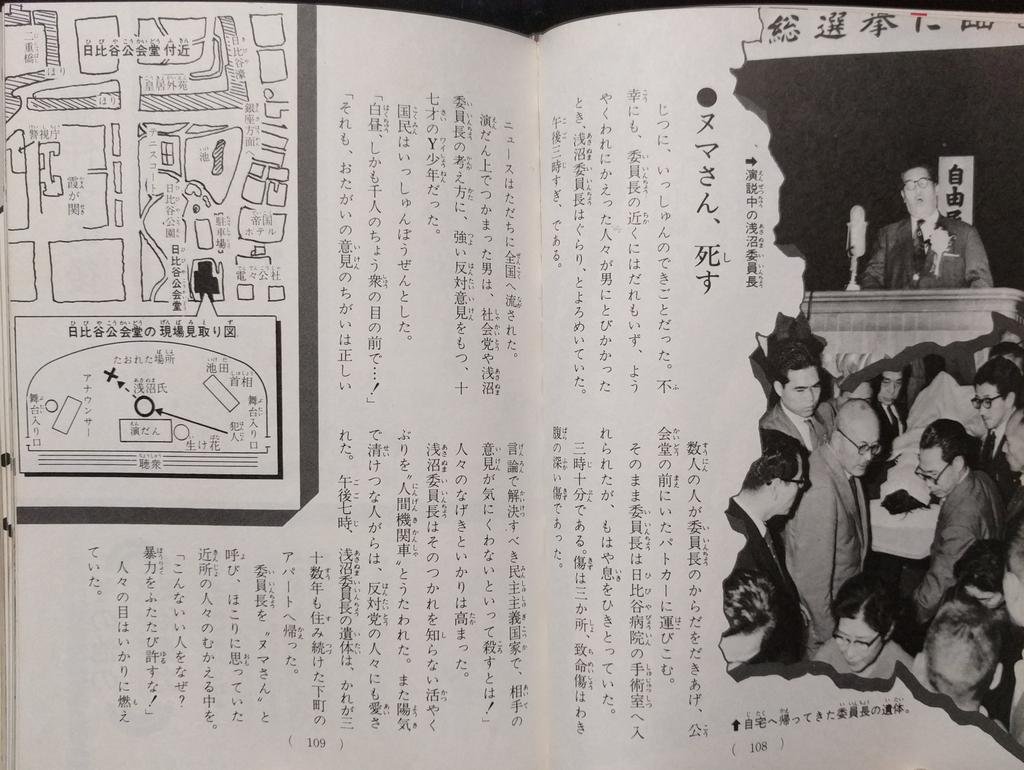 総選挙に臨
自由民
➡演説中の浅沼委員長
●ヌマさん、死す
じつに、いっしゅんのできごとだった。不
幸にも、委員長の近くにはだれもいず、よう
やくわれにかえった人々が男にとびかかった
とき、浅沼委員長はぐらり、とよろめいていた。
午後三時すぎ、である。
数人の人が委員長のからだをだきあげ、公
会堂の前にいたパトカーに運びこむ。
そのまま委員長は日比谷病院の手術室へ入
れられたが、もはや息をひきとっていた。
三時十分である。傷は三か所、致命傷はわき
腹の深い傷であった。
⬆自宅へ帰ってきた委員長の遺体。
( 108 )
ニュースはただちに全国へ流された。
演だん上でつかまった男は、社会党や浅沼
委員長の考え方に、強い反対意見をもつ、十
七才のY少年だった。
国民はいっしゅんぼうぜんとした。
「白昼、しかも千人のちょう衆の目の前で…!」
「それも、おたがいの意見のちがいは正しい
言論で解決すべき民主主義国家で、相手の
意見が気にくわないといって殺すとは!」
人々のなげきといかりは高まった。
浅沼委員長はそのつかれを知らない活やく
ぶりを〝人間機関車〟とうたわれた。また陽気
で清けつな人がらは、反対党の人々にも愛さ
れた。午後七時、
浅沼委員長の遺体は、かれが三
十数年も住み続けた下町の
アパートへ帰った。
委員長を〝ヌマさん〟と
呼び、ほこりに思っていた
近所の人々のむかえる中を。
「こんないい人をなぜ?
暴力をふたたび許すな!」
人々の目はいかりに燃え
ていた。
( 109 )
日比谷公会堂付近
二重橋
ほり
ほり
皇居外苑
日比谷濠
銀座方面
警視庁
霞が関
テニスコート
池
日比谷公園
駐車場
帝国ホテル
電々公社
日比谷公会堂
日比谷公会堂の現場見取り図
たおれた場所
浅沼氏
池田首相
アナウンサー
舞台入り口
舞台入り口
演だん
生け花
犯人
聴衆